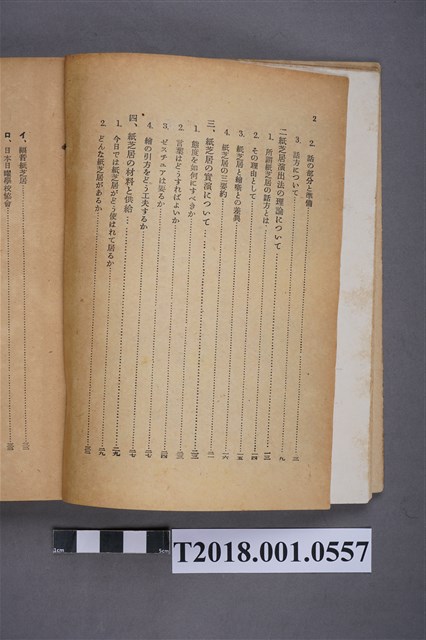 2
2. 話の部分と準備
3. 話方について
二 紙芝居演出法の理論について 九
1. 所謂紙芝居の話方とは 一三
2. その理由として 一四
3. 紙芝居と繪噺との差異 一五
4. 紙芝居の三要約 一六
三、紙芝居の實演について 二一
1. 態度を如何にすべきか
2. 言葉はどうすればよいか
3. ゼスチュアは要るか 二四
4. 繪の引方をどう工夫するか 二七
四、紙芝居の材料と供給 二七
1. 今日では紙芝居がどう使はれて居るか 二九
2. どんな紙芝居があるか 二九
イ、福音紙芝居
ロ、日本日曜學校協會
1cm
5cm
T2018.001.0557